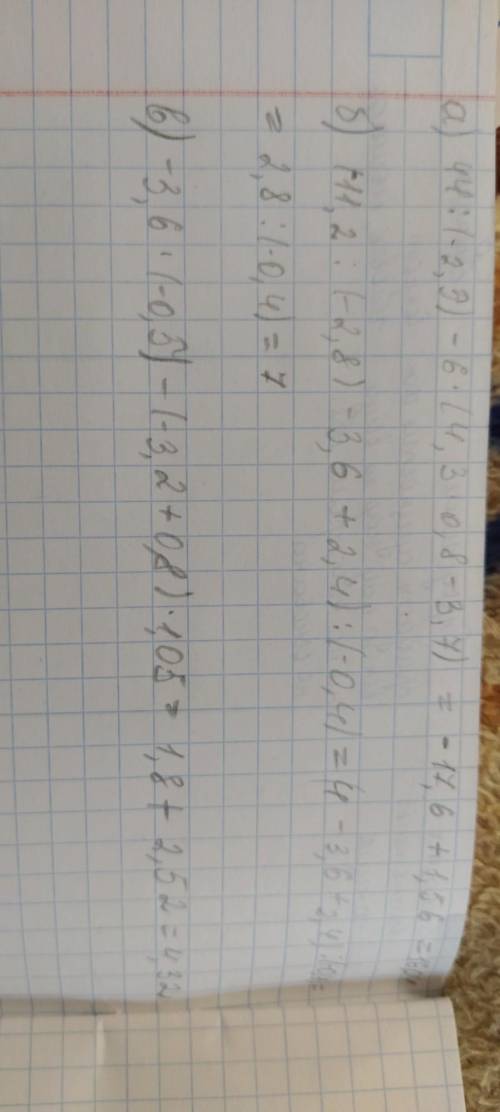 а) 44 : (-2,2) - 6 · (4,3 · 0,8 - 3,7) = -17,6 + 1,56 =
б) (-11,2 : (-2,8) - 3,6 + 2,4) : (-0,4) = (4 - 3,6 + 2,4)
= 2,8 : (-0,4) = 7
в) -3,6 · (-0,5) - (-3,2 + 0,8) · 1,05 = 1,8 + 2,52 = 4,32